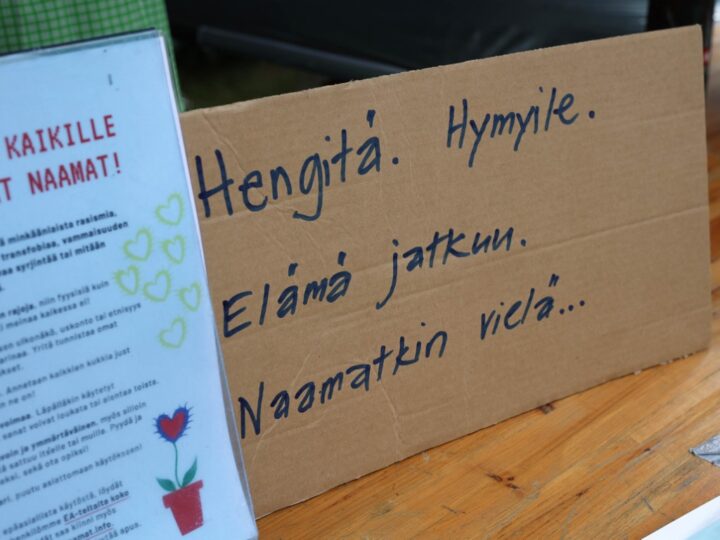 KAIKILLE
T NAAMAT!
minkäänlaista rasismia,
transfobiaa, vammaisuuden
syrjintää tai mitään
rajoja, niin fyysisiä kuin
i meinaa kaikessa ei!
ulkonäkö, uskonto tai etnisyys
arinaa. Yritä tunnistaa omat
Annetaan kaikkien kukkia just
ne on!
voimaa. Läpälläkin käytetyt
sanat voivat loukata tai alentaa toista.
ja ymmärtäväinen, myös silloin
sattuu itselle tai muille. Pyydä ja
eksi, sekä ota opiksi!
puutu asiattomaan käytökseen!
epäasiallista käytöstä, löydät
EA-teltalta koko
saa kiinni myös
amat.info.
apua.
Hengitä. Hymyile.
Elämä jatkuu.
Naamatkin vielä...